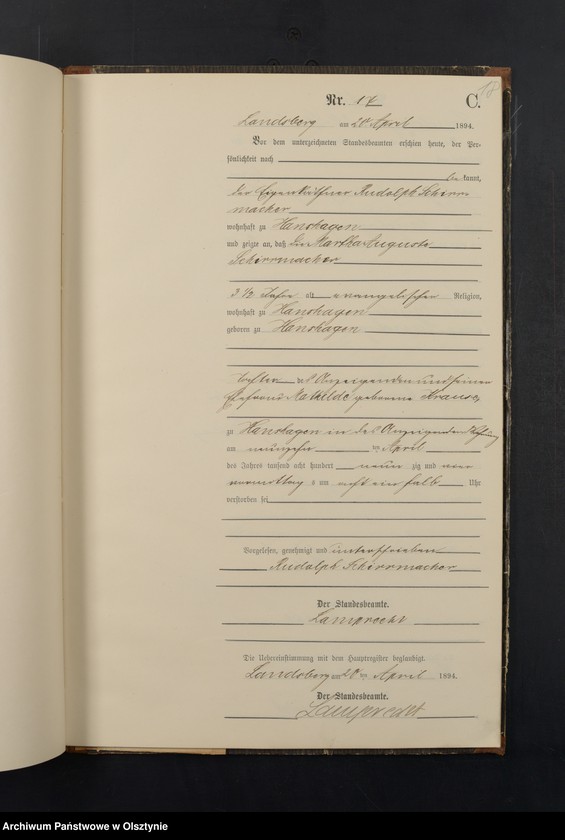 18
Nr. 17 C.
Landsberg am 20 April 1894.
Vor dem unterzeichneten Standesbeamten erschien heute, der Per-
sönlichkeit nach
be kannt,
der Eigenkäthner Rudolph Schirr-
macher
wohnhaft zu Hanshagen
und zeigte an, daß die Martha Auguste
Schirrmacher
3 1/2 Jahre alt evangelischer Religion,
wohnhaft zu Hanshagen
geboren zu Hanshagen
Tochter des Anzeigenden und seiner
Ehefrau Mathilde geborene Krause
zu Hanshagen in des Anzeigenden Wohnung
am neunzehn ten April
des Jahres tausend acht hundert neun zig und vier
vormittag s um acht ein halb Uhr
verstorben sei
Vorgelesen, genehmigt und unterschrieben
Rudolph Schirrmacher
Der Standesbeamte.
Lamprecht
Die Uebereinstimmung mit dem Hauptregister beglaubigt.
Landsberg am 20 ten April 1894.
Der Standesbeamte.
Lamprecht
Archiwum Państwowe w Olsztynie